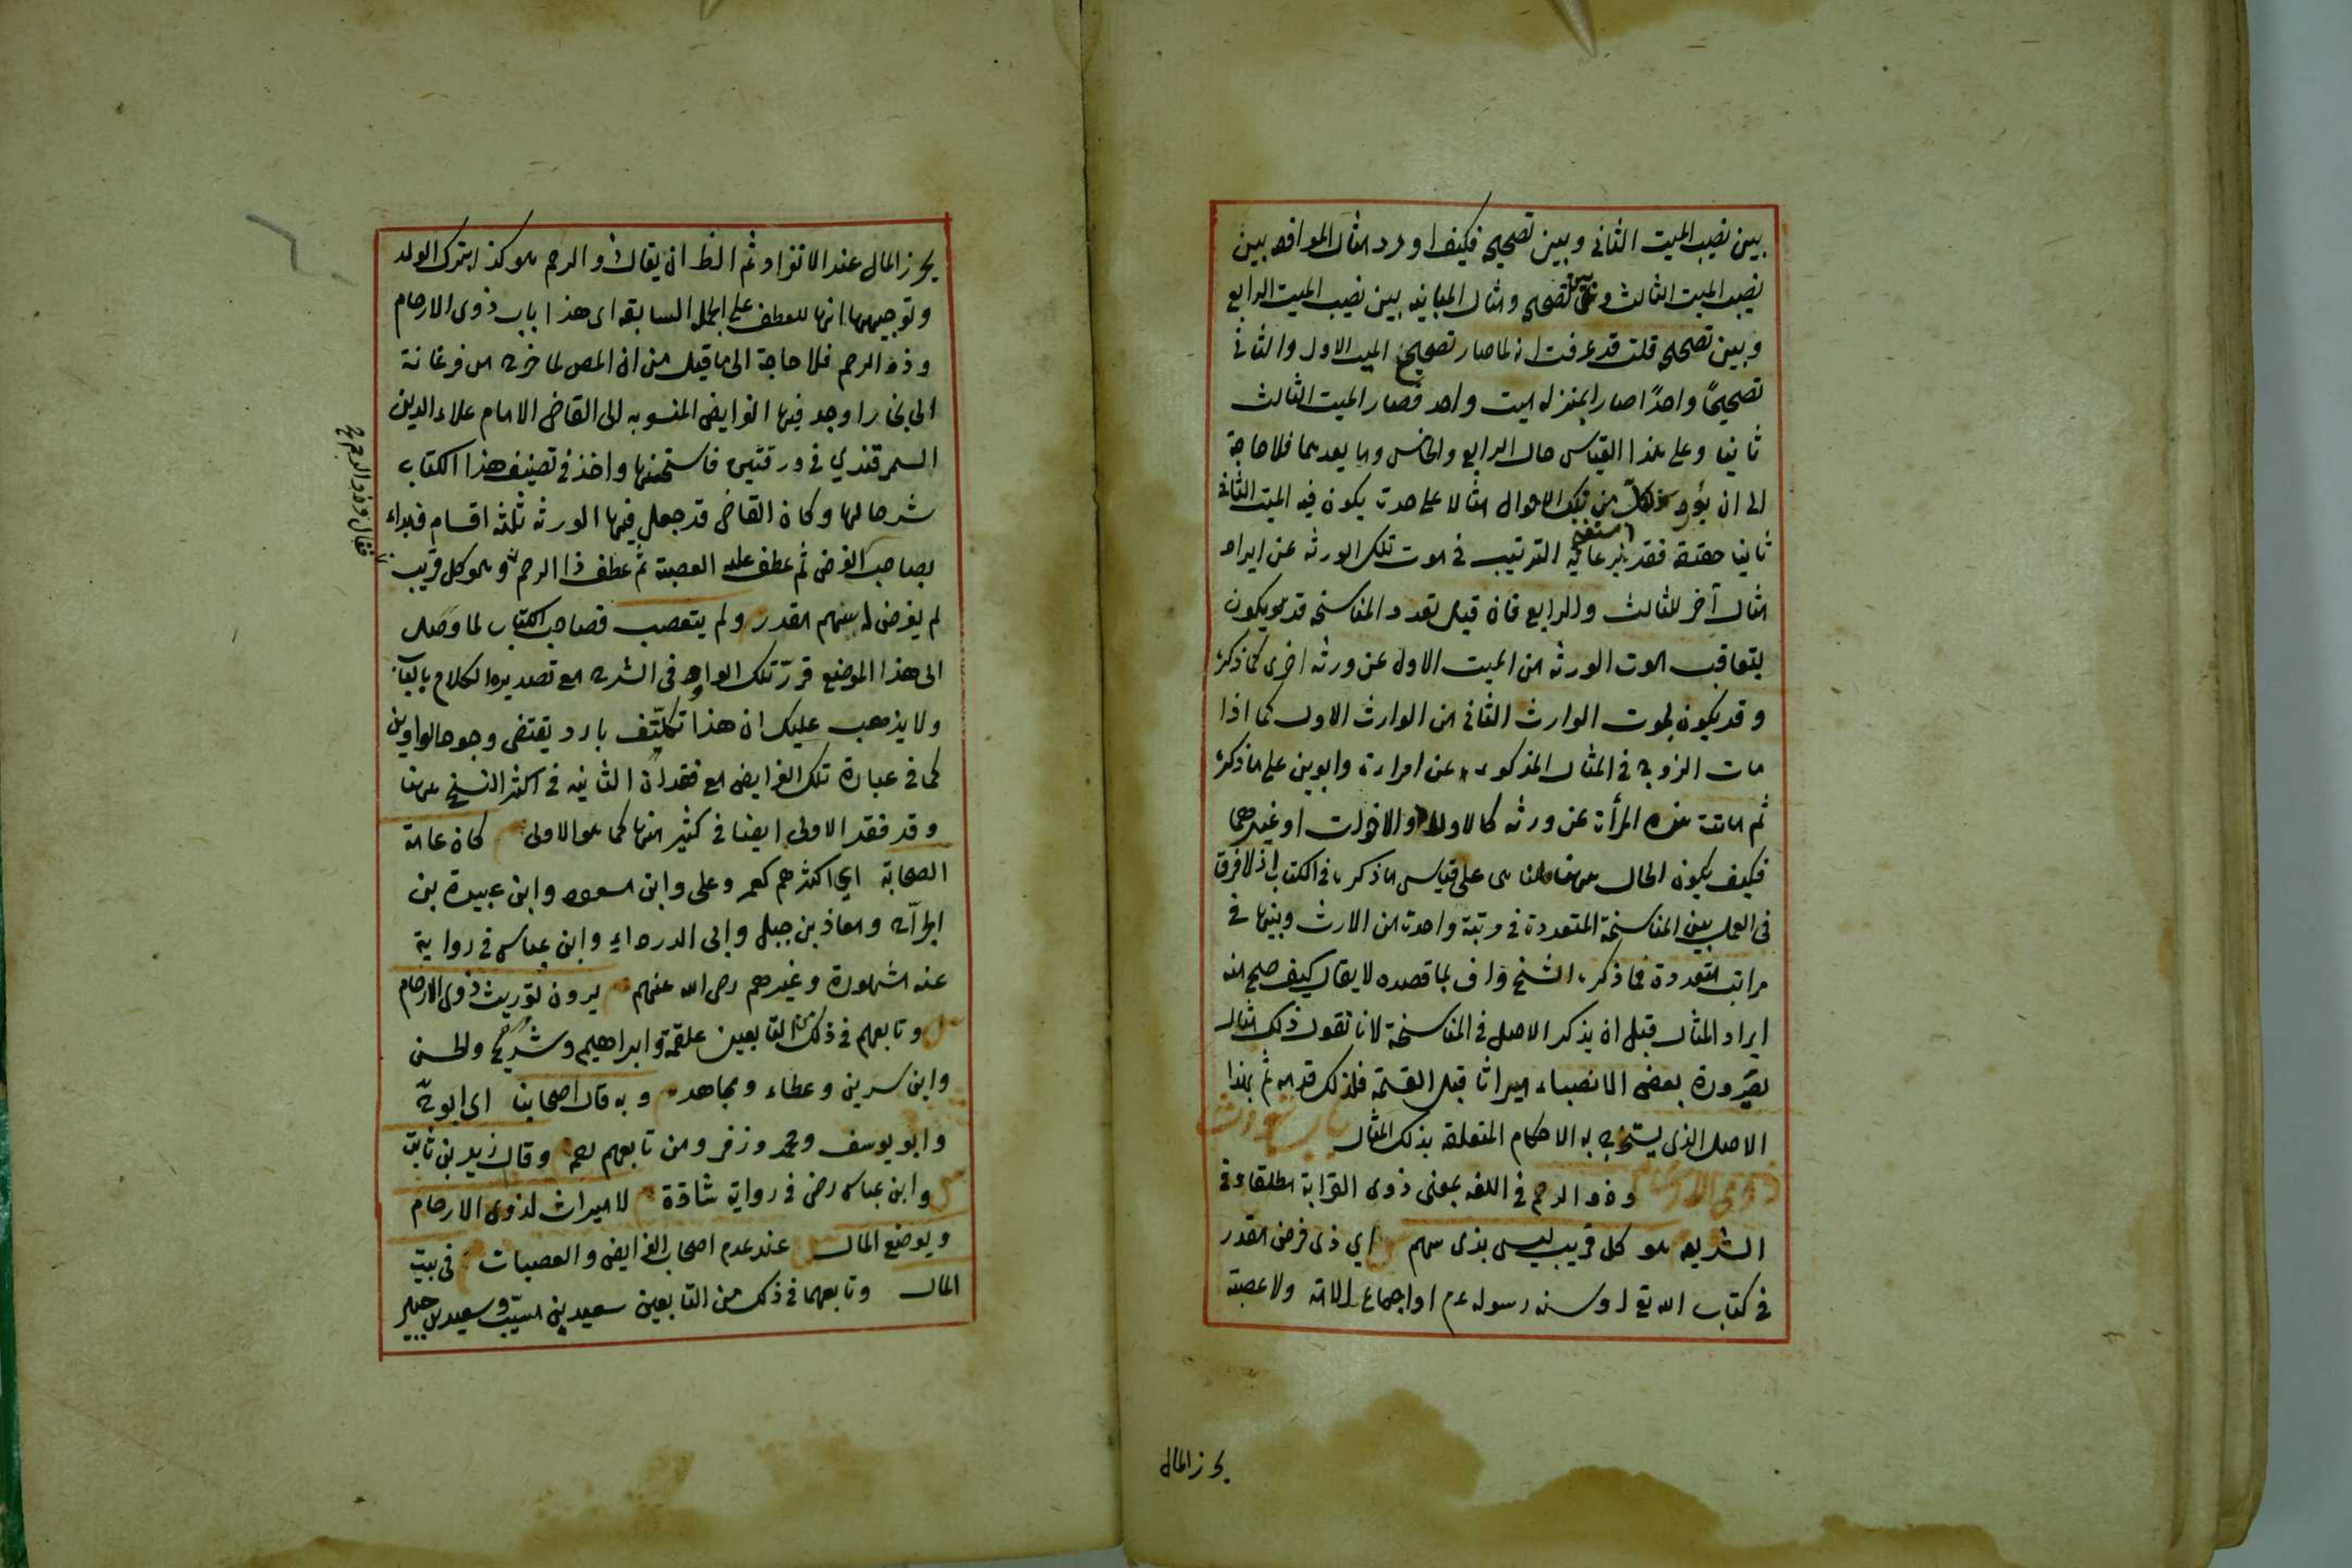 بين نصيب الميت الثانى وبين تصحيحه فكيف اورد مثال الموافقه بين
نصيب الميت الثالث وبين تصحيحه ومثال المباينه بين نصيب الميت الرابع
وبين تصحيحه قلت قد عرفت انه لما صار تصحيح الميت الاول والثانى
تصحيحًا واحدًا صارا بمنزله ميت واحد فصار الميت الثالث
ثانيا وعلى هذا القياس حال الرابع والخامس وما بعدهما فلا حاجة
الى ان يورد لكل من تلك الاحوال مثالا على حدة يكون فيه الميت الثانى
ثانيا حقيقة فقد استغنى برعاية الترتيب فى موت تلك الورثه عن ايراد
مثال آخر للثالث وللرابع فان قيل تعدد المناسخه قد يكون
بتعاقب موت الورثه من الميت الاول عن ورثه اخرى كما ذكره
وقد يكون بموت الوارث الثانى من الوارث الاول كما اذا
مات الزوج فى المثال المذكور عن امراءة وابوين على ما ذكره
ثم ماتت هذه المرأة عن ورثه كالاولاد والاخوات او غيرهما
فكيف يكون الحال ههنا قلنا هى على قياس ما ذكره فى الكتاب اذ لا فرق
فى العمل بين المناسخة المتعددة فى مرتبة واحدة من الارث وبينها فى
مراتب متعددة فما ذكره الشيخ واف بما قصده لا يقال كيف صح منه
ايراد المثال قبل ان يذكر الاصل فى المناسخة لانا نقول ذلك مثال
لصيرورة بعض الانصباء ميراثا قبل القسمة فلذلك قدمه ثم بهذا
الاصل الذى يستخرج به الاحكام المتعلقه بذلك المثال باب
ذوى الارحام وذو الرحم فى اللغه بمعنى ذوى القرابة مطلقا وفى
الشريعه هو كل قريب ليس بذى سهم اي ذى فرض مقدر
فى كتاب الله تع او سنه رسوله عم او اجماع الامة ولا عصبة
يحرز المال
يحرز المال عند الانفراد ثم الظ ان يقال ذو الرحم هو كذا بترك الواو
وتوجيهها انها للعطف على الجمل السابقه اى هذا باب ذوى الارحام
وذو الرحم فلا حاجة الى ما قيل من ان المص لما خرج من فرغانة
الى بخارا وجد فيها الفرايض المنسوبه الى القاضى الامام علاء الدين
السمرقندي فى ورقتين فاستحسنها واخذ فى تصنيف هذا الكتاب
شرحا لها وكان القاضى قد جعل فيها الورثه ثلثه اقسام فبداء
بصاحب الفرض ثم عطف عليه العصبة ثم عطف ذا الرحم وهو كل قريب
فقال وذو الرحم
لم يفرض له سهم مقدر ولم يتعصب فصاحب الكتاب لما وصل
الى هذا الموضع قرر تلك الواو فى الشرح مع تصديره الكلام بالباب
ولا يذهب عليك ان هذا تكلّف بارد يقتضى وجود الواوين
كما فى عبارة تلك الفرايض مع فقدان الثانيه فى اكثر النسخ ههنا
وقد فقد الاولى ايضا فى كثير منها كما هو الاولى كان عامة
الصحابة اي اكثرهم كعمر وعلى وابن مسعود وابن عبيدة بن
الجراح ومعاذ بن جبل وابى الدرداء وابن عباس فى رواية
عنه مشهورة وغيرهم رضى الله عنهم يرون توريث ذوى الارحام
وتابعهم فى ذلك من التابعين علقمة وابراهيم وشريح والحسن
وابن سرين وعطاء ومجاهد وبه قال اصحابنا اى ابو ح
وابو يوسف ومحمد وزفر ومن تابعهم رحمه وقال زيد بن ثابت
وابن عباس رضى فى رواية شاذة لا ميراث لذوى الارحام
ويوضع المال عند عدم اصحاب الفرايض والعصبات فى بيت
المال وتابعهما فى ذلك من التابعين سعيد بن المسيّب وسعيد بن جبير